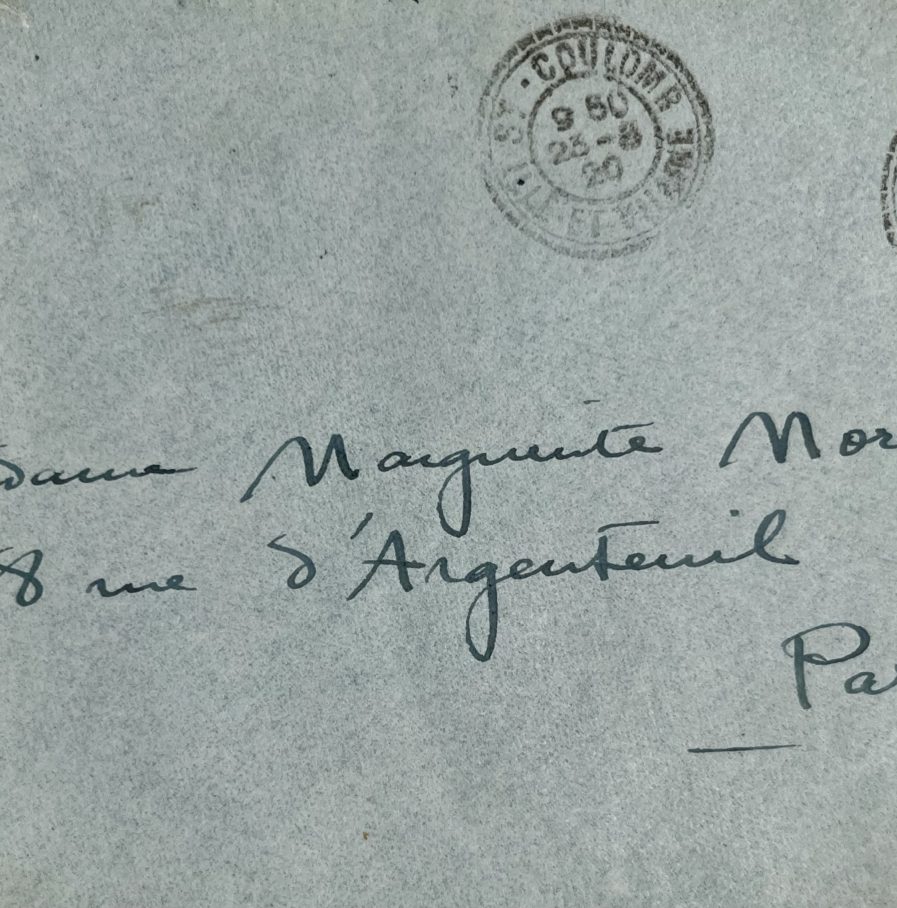 ST-COULOMB
ILLE-ET-VILAINE
9 50
23 -8
20
dame Marguerite Mor
8 rue d'Argenteuil
Par